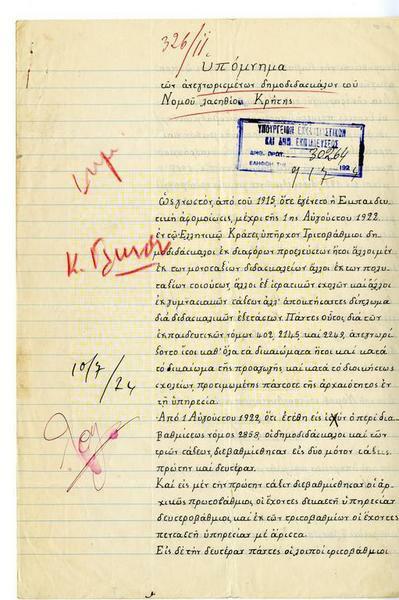 326/II.
Ὑπόμνημα
τῶν ἀνεγνωρισμένων δημοδιδασκάλων τοῦ
Νομοῦ Λασηθίου Κρήτης
ΥΠΟΥΡΓΕΙΟΝ ΕΚΚΛΗΣΙΑΣΤΙΚΩΝ
ΚΑΙ ΔΗΜ. ΕΚΠΑΙΔΕΥΣΕΩΣ
ΑΡΙΘ. ΠΡΩΤ. 30264
ΕΛΗΦΘΗ ΤΗ 9 17 192
Ὡς γνωστόν, ἀπό τοῦ 1915, ὅτε ἐγένετο ἡ Ἐκπαιδευ-
τική ἀφομοίωσις, μέχρι τῆς 1ης Αὐγούστου 1922
ἐν τῷ Ἑλληνικῷ Κράτει ὑπῆρχον Τριτοβάθμιοι δη-
μοδιδάσκαλοι ἐκ διαφόρων προελεύσεων ἤτοι ἄλλοι μέν
ἐκ τῶν μονοταξίων διδασκαλείων ἄλλοι ἐκ τῶν πολυ-
ταξίων τοιούτων, ἄλλοι ἐξ ἱερατικῶν σχολῶν καί ἄλλοι
ἐκ γυμνασιακῶν τάξεων ἀλλ' ἀποκτήσαντες δίπλωμα
διά διδασκαλικῶν ἐξετάσεων. Πάντες οὗτοι διά τῶν
ἐκπαιδευτικῶν νόμων 402, 2145, καί 2249, ἀνεγνωρί
ζοντο ἴσοι καθ' ὅλα τά δικαιώματα ἤτοι καί κατά
τό δικαίωμα τῆς προαγωγῆς καί κατά τό διοικήσεως
σχολείων, προτιμωμένης πάντοτε τῆς ἀρχαιότητος ἐν
τῇ ὑπηρεσίᾳ.
10/7/24
Ἀπό 1 Αὐγούστου 1922, ὅτε ἐτέθη εἰς ἰσχύν ὁ περί δια-
βαθμίσεως νόμος 2858, οἱ δημοδιδάσκαλοι καί τῶν
τριῶν τάξεων, διεβαθμίσθησαν εἰς δύο μόνον τάξεις
πρώτην καί δευτέραν.
Καί εἰς μέν τήν πρώτην τάξιν διεβαθμίσθησαν οἱ ἀρ-
χικῶς πρωτοβάθμιοι, οἱ ἔχοντες δεκαετῆ ὑπηρεσίαν
δευτεροβάθμιοι, καί ἐκ τῶν τριτοβαθμίων οἱ ἔχοντες
πενταετῆ ὑπηρεσίαν μέ ἄριστα.
Εἰς δέ τήν δευτέραν πάντες οἱ λοιποί τριτοβάθμιοι